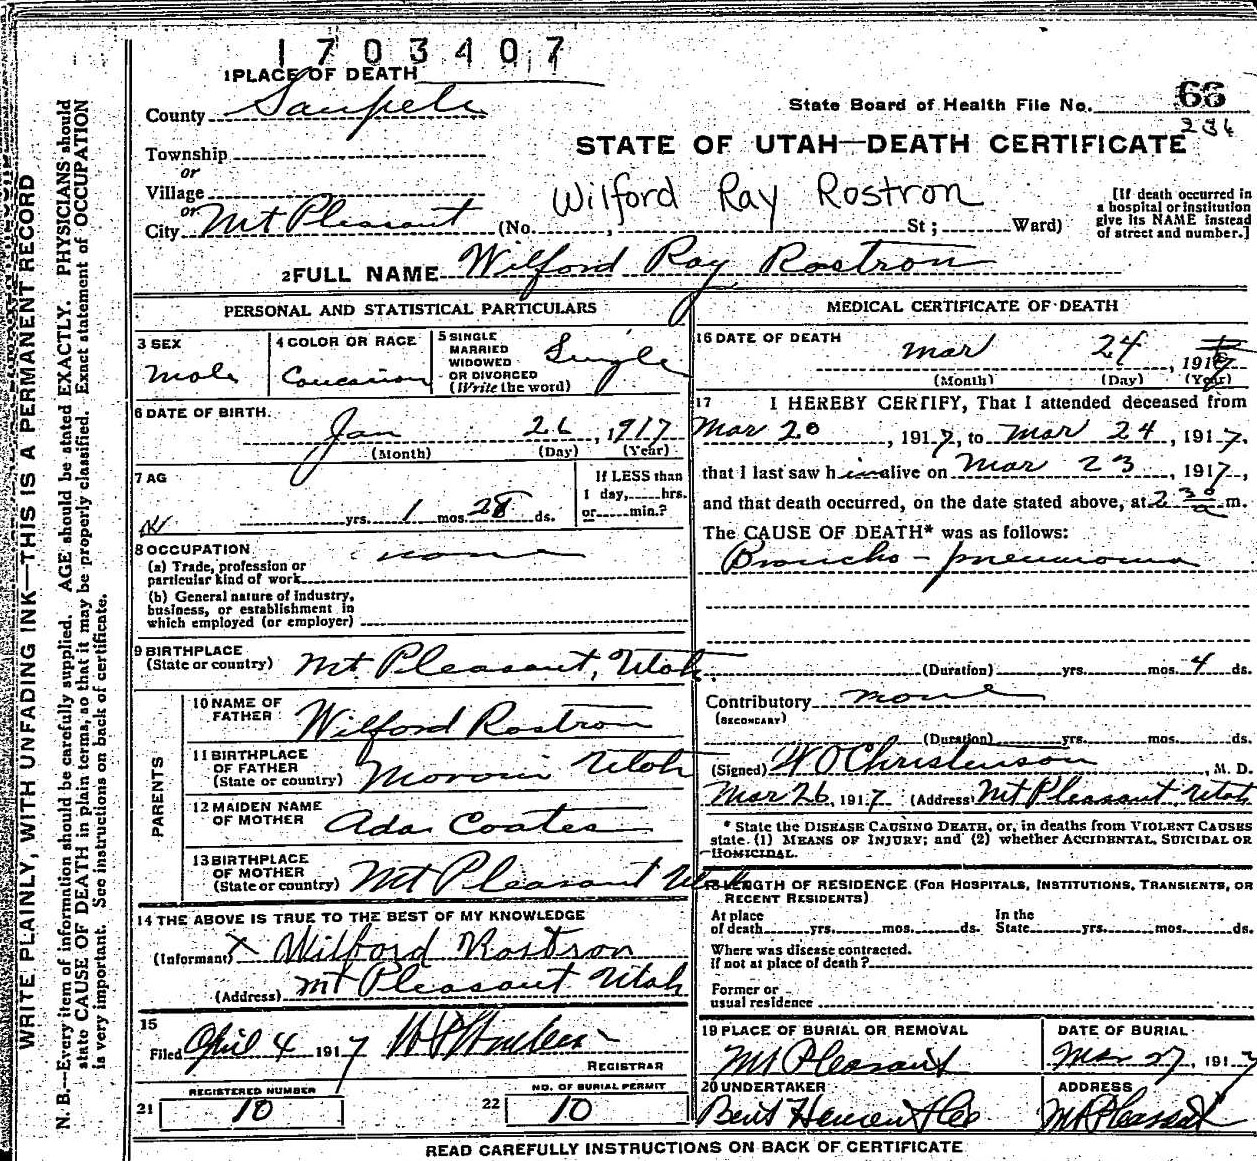 1703407
1 PLACE OF DEATH
County Sanpete
State Board of Health File No. 66
236
STATE OF UTAH—DEATH CERTIFICATE
Township
or
Village
or
City Mt Pleasant (No. , St; Ward)
Wilford Ray Rostron
[If death occurred in
a hospital or institution
give its NAME instead
of street and number.]
2 FULL NAME Wilford Ray Rostron
PERSONAL AND STATISTICAL PARTICULARS
3 SEX
Male
4 COLOR OR RACE
Caucasion
5 SINGLE
MARRIED
WIDOWED
OR DIVORCED
(Write the word)
Single
6 DATE OF BIRTH.
Jan 26, 1917
(Month) (Day) (Year)
7 AG
yrs. 1 mos. 28 ds.
If LESS than
1 day, hrs.
or min.?
8 OCCUPATION
none
(a) Trade, profession or
particular kind of work
(b) General nature of industry,
business, or establishment in
which employed (or employer)
9 BIRTHPLACE
(State or country) Mt. Pleasant, Utah.
PARENTS
10 NAME OF
FATHER
Wilford Rostron
11 BIRTHPLACE
OF FATHER
(State or country)
Moroni Utah
12 MAIDEN NAME
OF MOTHER
Ada Coates
13 BIRTHPLACE
OF MOTHER
(State or country)
Mt Pleasant Utah
14 THE ABOVE IS TRUE TO THE BEST OF MY KNOWLEDGE
(Informant) X Wilford Rostron
(Address) Mt Pleasant Utah
15
Filed April 4 1917
REGISTRAR
REGISTERED NUMBER
21 10
NO. OF BURIAL PERMIT
22 10
MEDICAL CERTIFICATE OF DEATH
16 DATE OF DEATH
Mar 24, 1917
(Month) (Day) (Year)
17 I HEREBY CERTIFY, That I attended deceased from
Mar 20, 1917, to Mar 24, 1917.
that I last saw him alive on Mar 23, 1917,
and that death occurred, on the date stated above, at 2 30 a m.
The CAUSE OF DEATH* was as follows:
Broncho-pneumonia
(Duration) yrs. mos. 4 ds.
Contributory none
(SECONDARY)
(Duration) yrs. mos. ds.
(Signed) W O Christenson, M. D.
Mar 26, 1917 (Address) Mt Pleasant Utah
* State the DISEASE CAUSING DEATH, or, in deaths from VIOLENT CAUSES
state (1) MEANS OF INJURY; and (2) whether ACCIDENTAL, SUICIDAL OR
HOMICIDAL.
18 LENGTH OF RESIDENCE (FOR HOSPITALS, INSTITUTIONS, TRANSIENTS, OR
RECENT RESIDENTS)
At place
of death yrs. mos. ds.
In the
State yrs. mos. ds.
Where was disease contracted.
if not at place of death?
Former or
usual residence
19 PLACE OF BURIAL OR REMOVAL
Mt Pleasant
DATE OF BURIAL
Mar 27, 1917
20 UNDERTAKER
Bent Hansen
ADDRESS
Mt Pleasant
READ CAREFULLY INSTRUCTIONS ON BACK OF CERTIFICATE
WRITE PLAINLY, WITH UNFADING INK—THIS IS A PERMANENT RECORD
N. B.—Every item of information should be carefully supplied. AGE should be stated EXACTLY. PHYSICIANS should
state CAUSE OF DEATH in plain terms, so that it may be properly classified. Exact statement of OCCUPATION
is very important. See instructions on back of certificate.